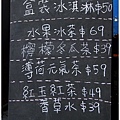 盒裝冰淇淋$50
水果冰茶$69
檸檬冬瓜茶$39
薄荷元氣茶$59
紅玉紅茶$49
香草水$39